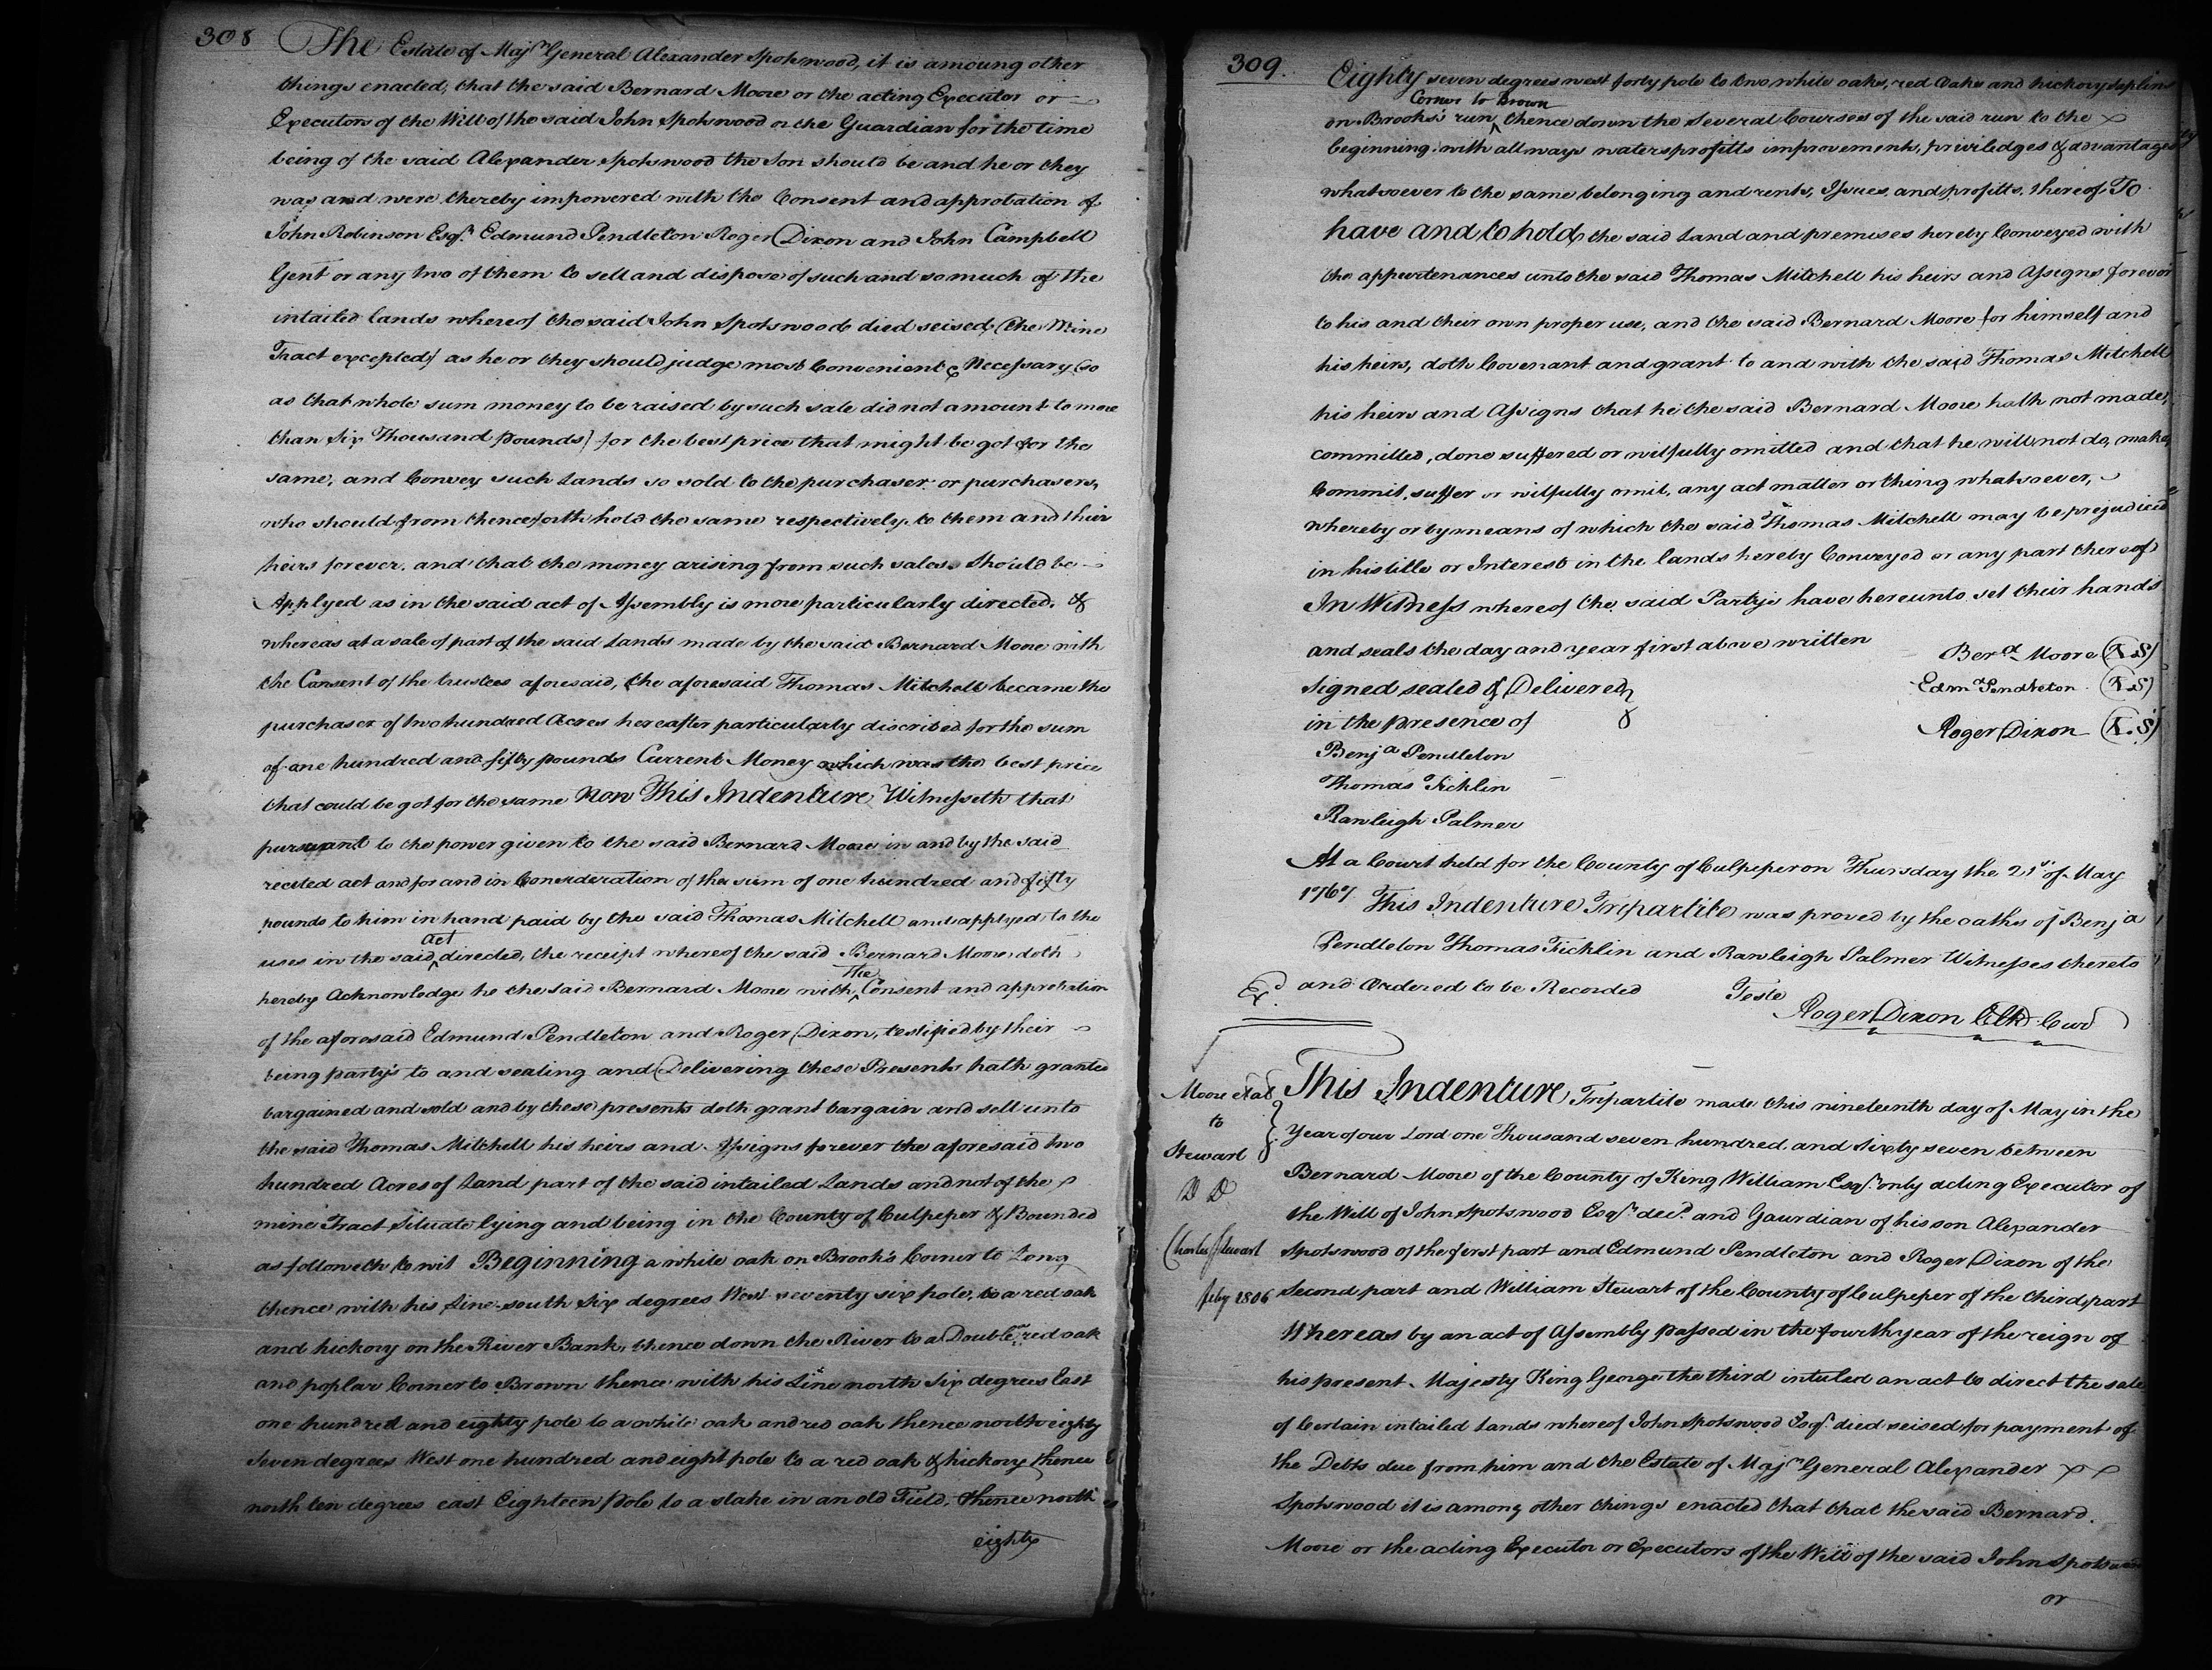 308 The Estate of Majr General Alexander Spotswood, it is amoung other
things enacted, that the said Bernard Moore or the acting Executor or
Executors of the Will of the said John Spotswood or the Guardian for the time
being of the said Alexander Spotswood the Son should be and he or they
was and were thereby impowered with the Consent and approbation of
John Robinson Esqr. Edmund Pendleton Roger Dixon and John Campbell
Gent or any two of them to sell and dispose of such and so much of the
intailed lands whereof the said John Spotswood died seised (the Mine
Tract excepted) as he or they should judge most Convenient & Necessary (so
as that whole sum money to be raised by such sale did not amount to more
than Six Thousand pounds) for the best price that might be got for the
same, and Convey such Lands so sold to the purchaser or purchasers,
who should from thenceforth hold the same respectively to them and their
heirs forever, and that the money arising from such sales Should be
Applyed as in the said act of Assembly is more particularly directed. &
whereas at a sale of part of the said Lands made by the said Bernard Moore with
the Consent of the trustees aforesaid, the aforesaid Thomas Mitchell became the
purchaser of two hundred Acres hereafter particularly discribed for the sum
of one hundred and fifty pounds Current Money which was the best price
that could be got for the same Now This Indenture Witnesseth that
pursuant to the power given to the said Bernard Moore in and by the said
recited act and for and in Consideration of the sum of one hundred and fifty
pounds to him in hand paid by the said Thomas Mitchell and applyed to the
uses in the said act directed, the receipt whereof the said Bernard Moore doth
hereby Acknowledge he the said Bernard Moore with The Consent and approbation
of the aforesaid Edmund Pendleton and Roger Dixon, testified by their
being party's to and sealing and Delivering these Presents hath granted
bargained and sold and by these presents doth grant bargain and sell unto
the said Thomas Mitchell his heirs and Assigns forever the aforesaid two
hundred Acres of Land part of the said intailed Lands and not of the
mine Tract Situate lying and being in the County of Culpeper & Bounded
as followeth to wit Beginning a white oak on Brook's Corner to Long
thence with his Line south Six degrees West seventy six pole, to a red oak
and hickory on the River Bank, thence down the River to a Double red oak
and poplar Corner to Brown thence with his Line north Six degrees East
one hundred and eighty pole to a white oak and red oak thence north eighty
Seven degrees West one hundred and eight pole to a red oak & hickory thence
north ten degrees east Eighteen Pole to a stake in an old Field, thence north
eighty
309. Eighty seven degrees west forty pole to two white oaks, red Oaks and hickory Saplins
on Brooks's run Corner to Brown thence down the Several Courses of the said run to the
beginning with all ways waters profitts improvements, priviledges & advantages
whatsoever to the same belonging and rents, Issues and profitts thereof To
have and to hold the said Land and premises hereby Conveyed with
the appurtenances unto the said Thomas Mitchell his heirs and Assigns forever
to his and their own proper use, and the said Bernard Moore for himself and
his heirs, doth Covenant and grant to and with the said Thomas Mitchell
his heirs and Assigns that he the said Bernard Moore hath not made,
committed, done suffered or wilfully omitted and that he will not do, make,
Commit, suffer or wilfully omit, any act matter or thing whatsoever,
whereby or by means of which the said Thomas Mitchell may be prejudiced
in his title or Interest in the lands hereby Conveyed or any part thereof
In Witness whereof the said Partys have hereunto set their hands
and seals the day and year first above written
Berd Moore (L.S)
Signed sealed & Delivered
Edmd Pendleton (L.S)
in the presence of
Roger Dixon (L.S)
Benja Pendleton
Thomas Ficklin
Rawleigh Palmer
At a Court held for the County of Culpeper on Thursday the 21st of May
1767 This Indenture Tripartite was proved by the oaths of Benja
Pendleton Thomas Ficklin and Rawleigh Palmer Witnesses thereto
Exd and Ordered to be Recorded
Teste
Roger Dixon Clk Cur
Moore &al
to
Stewart
D D
Charles Stewart
feby 1806
This Indenture Tripartite made this nineteenth day of May in the
Year of our Lord one Thousand seven hundred and Sixty seven between
Bernard Moore of the County of King William Esqr. only acting Executor of
the Will of John Spotswood Esqr. decd. and Gaurdian of his son Alexander
Spotswood of the first part and Edmund Pendleton and Roger Dixon of the
Second part and William Stewart of the County of Culpeper of the third part
Whereas by an act of Assembly passed in the fourth year of the reign of
his present Majesty King George the third intuled an act to direct the sale
of Certain intailed Lands whereof John Spotswood Esqr. died seised for payment of
the Debts due from him and the Estate of Majr General Alexander
Spotswood it is among other things enacted that that the said Bernard.
Moore or the acting Executor or Executors of the Will of the said John Spotswood
or